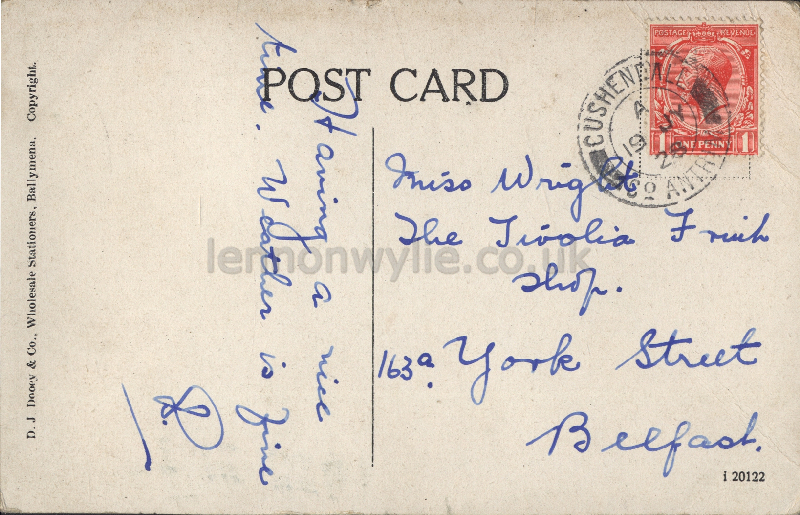 POST CARD
POSTAGE REVENUE
ONE PENNY
1 1
CUSHENDALL
CO ANTRIM
A
19 JY
28
Miss Wright
The Tivolia Fruit
Shop.
163a York Street
Belfast.
Having a nice
time. Weather is fine
D. J Dooey & Co., Wholesale Stationers, Ballymena. Copyright.
i 20122
lennonwylie.co.uk